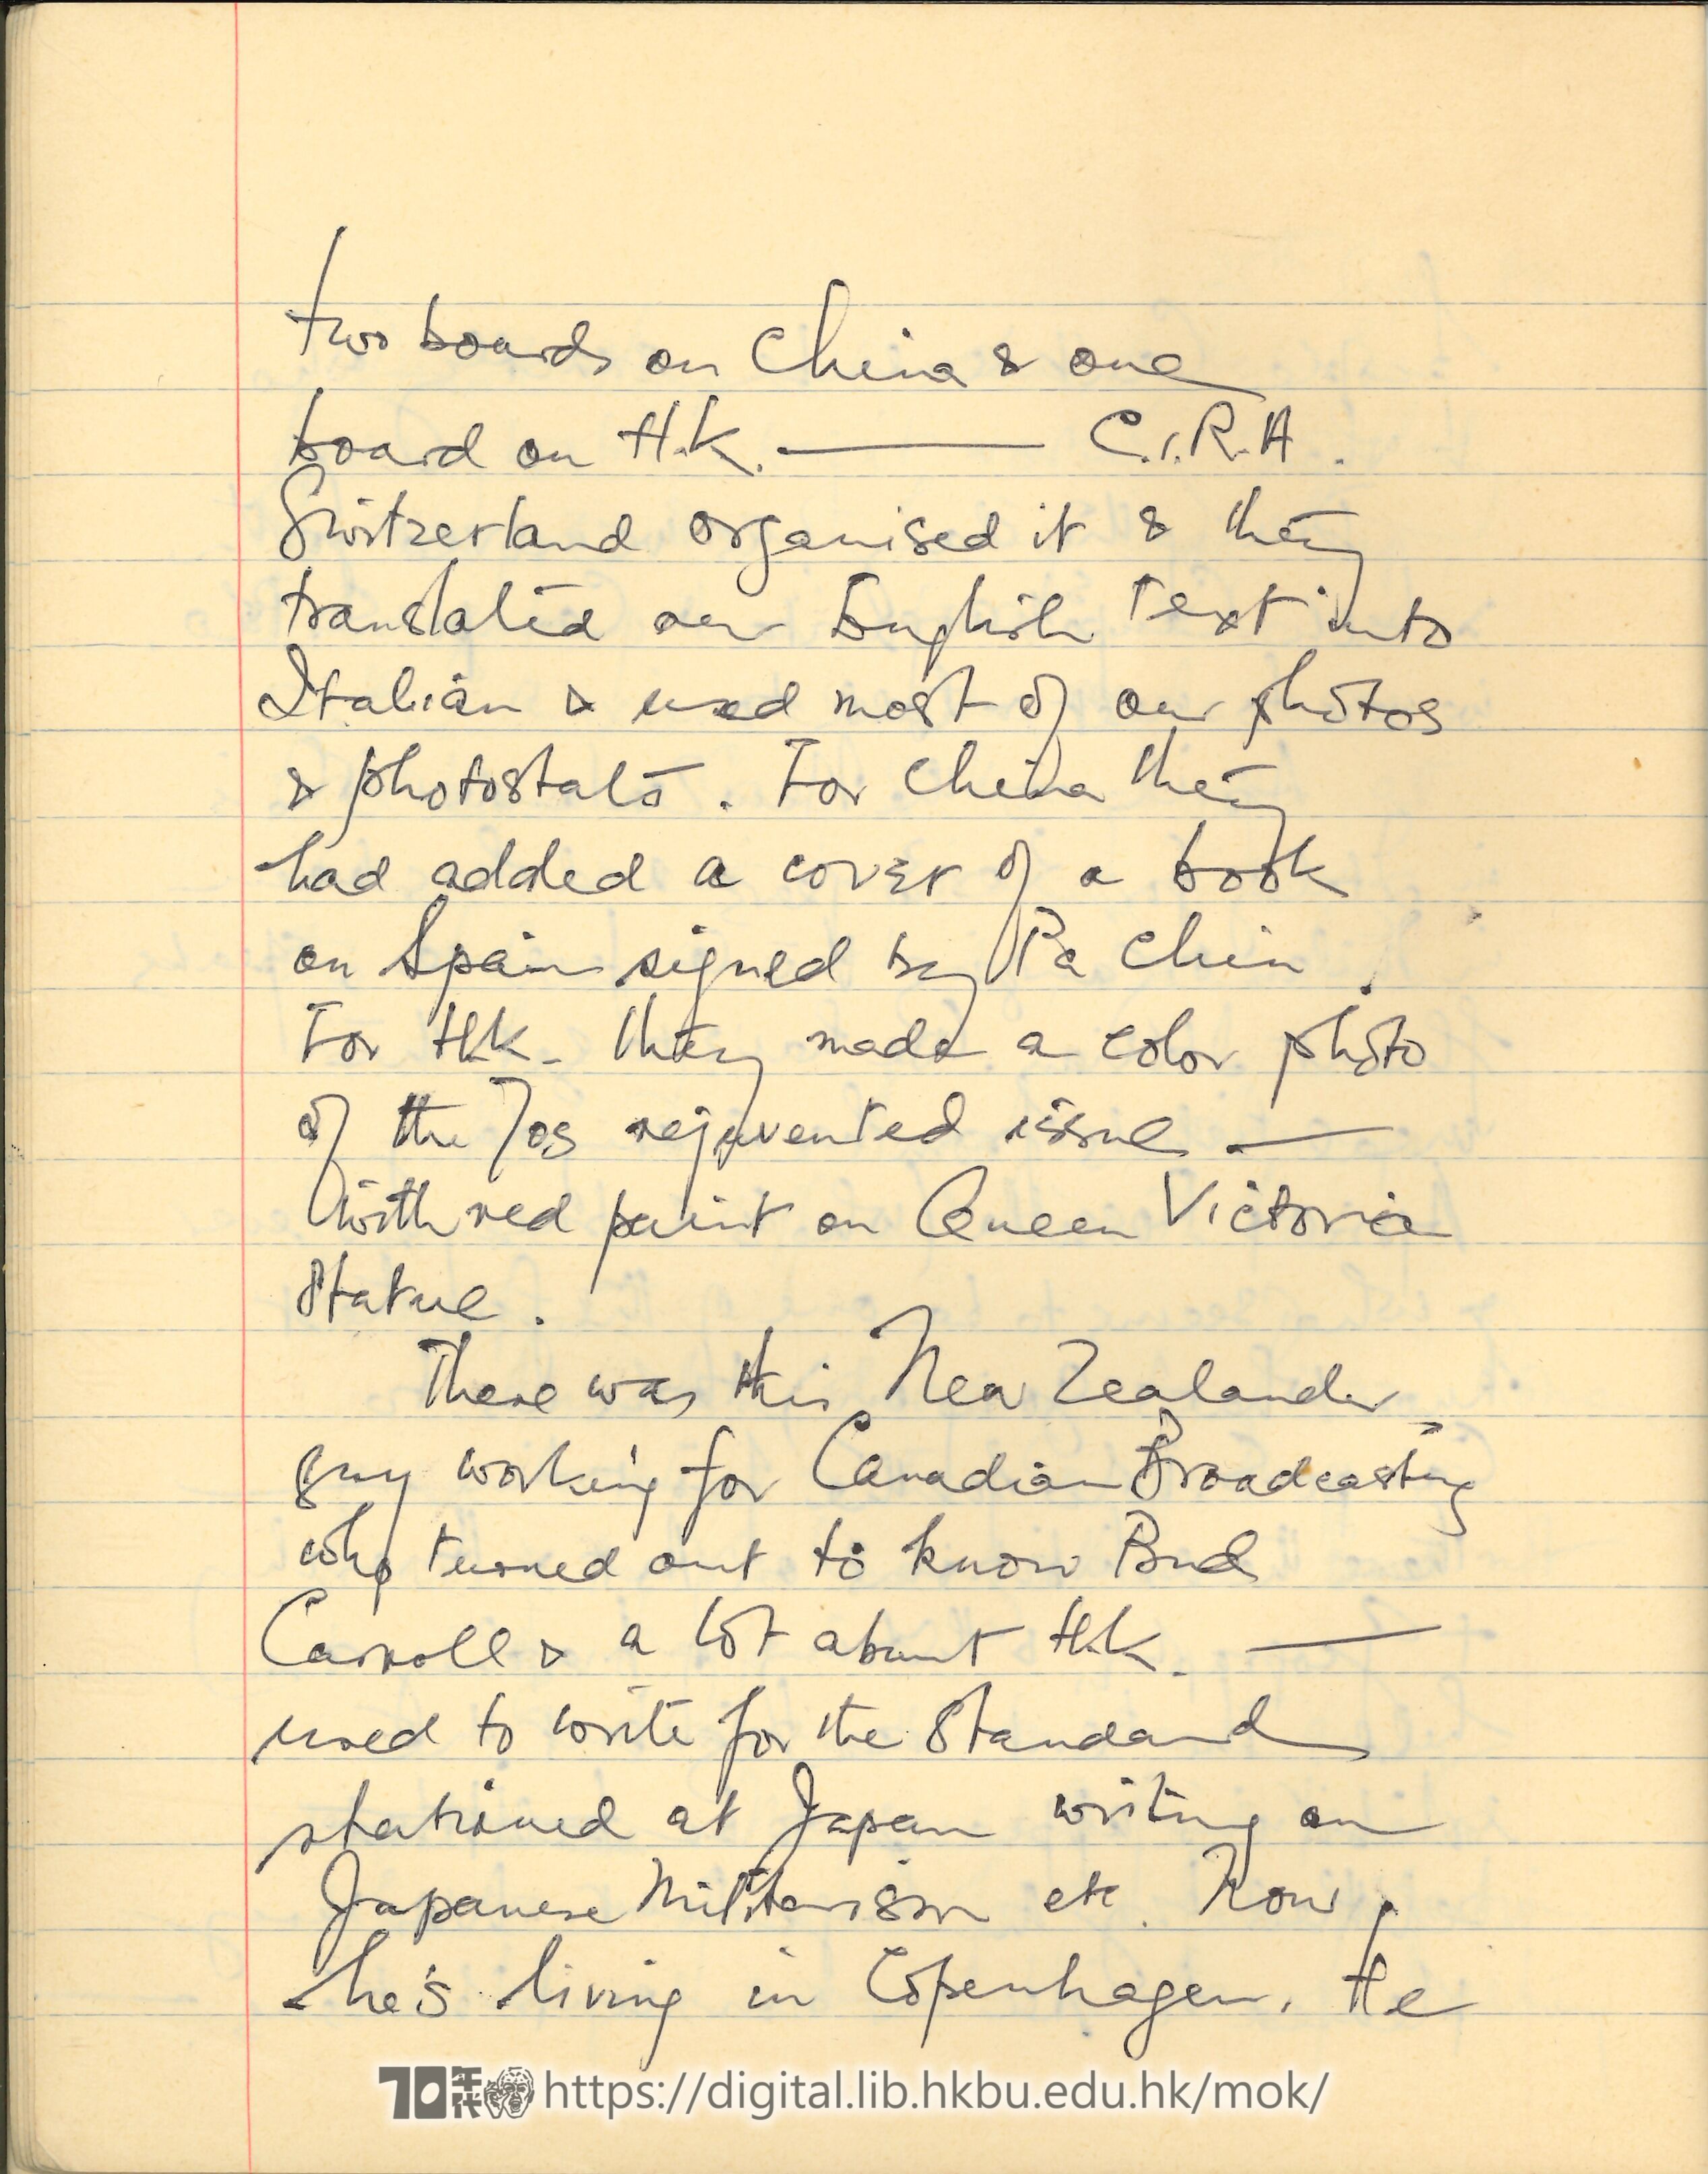 two boards on China & one
board on H.K. — C.I.R.A.
Switzerland organised it & they
translated our English text into
Italian & used most of our photos
& photostats. For China they
had added a cover of a book
on Spain signed by Pa Chin.
For H.K. they made a color photo
of the 70s rejuvented issue —
with red paint on Queen Victoria
Statue.
There was this New Zealander
guy working for Canadian Broadcasting
who turned out to know Bud
Carroll & a lot about H.K. —
used to write for the Standard
stationed at Japan writing on
Japanese Militarism etc. Now,
he's living in Copenhagen. He
70年代 https://digital.lib.hkbu.edu.hk/mok/